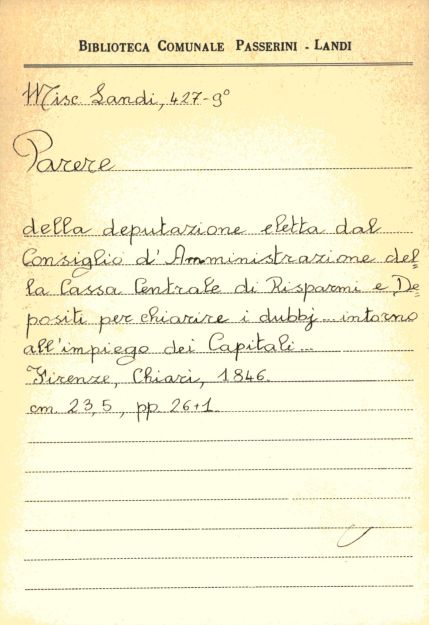 BIBLIOTECA COMUNALE PASSERINI - LANDI
Misc. Landi, 427-9°
Parere
della deputazione eletta dal
Consiglio d'Amministrazione del=
la Cassa Centrale di Risparmi e De=
positi per chiarire i dubbj... intorno
all'impiego dei Capitali...
Firenze, Chiari, 1846.
cm. 23,5, pp. 26+1.